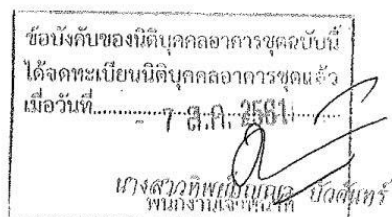 ข้อบังคับของนิติบุคคลอาคารชุดฉบับนี้
ได้จดทะเบียนนิติบุคคลอาคารชุดแล้ว
เมื่อวันที่.......- 7 ส.ค. 2561.......
นางสาว
พนักงานเจ้าหน้าที่